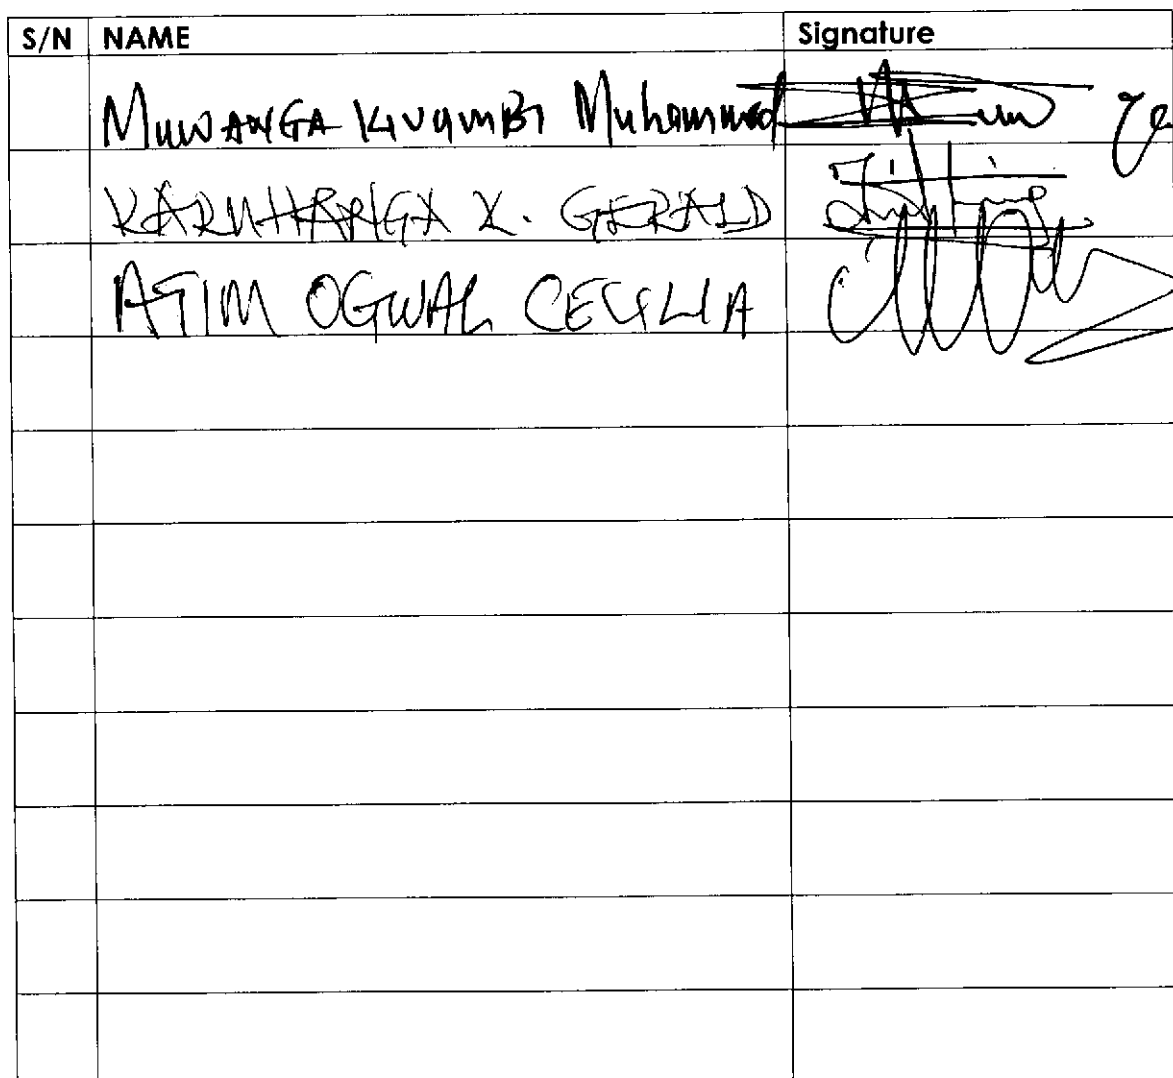 S/N NAME Signature
MUWANGA KIVUMBI Muhammad
KARUHANGA K. GERALD
ATIM OGWAL CECILIA